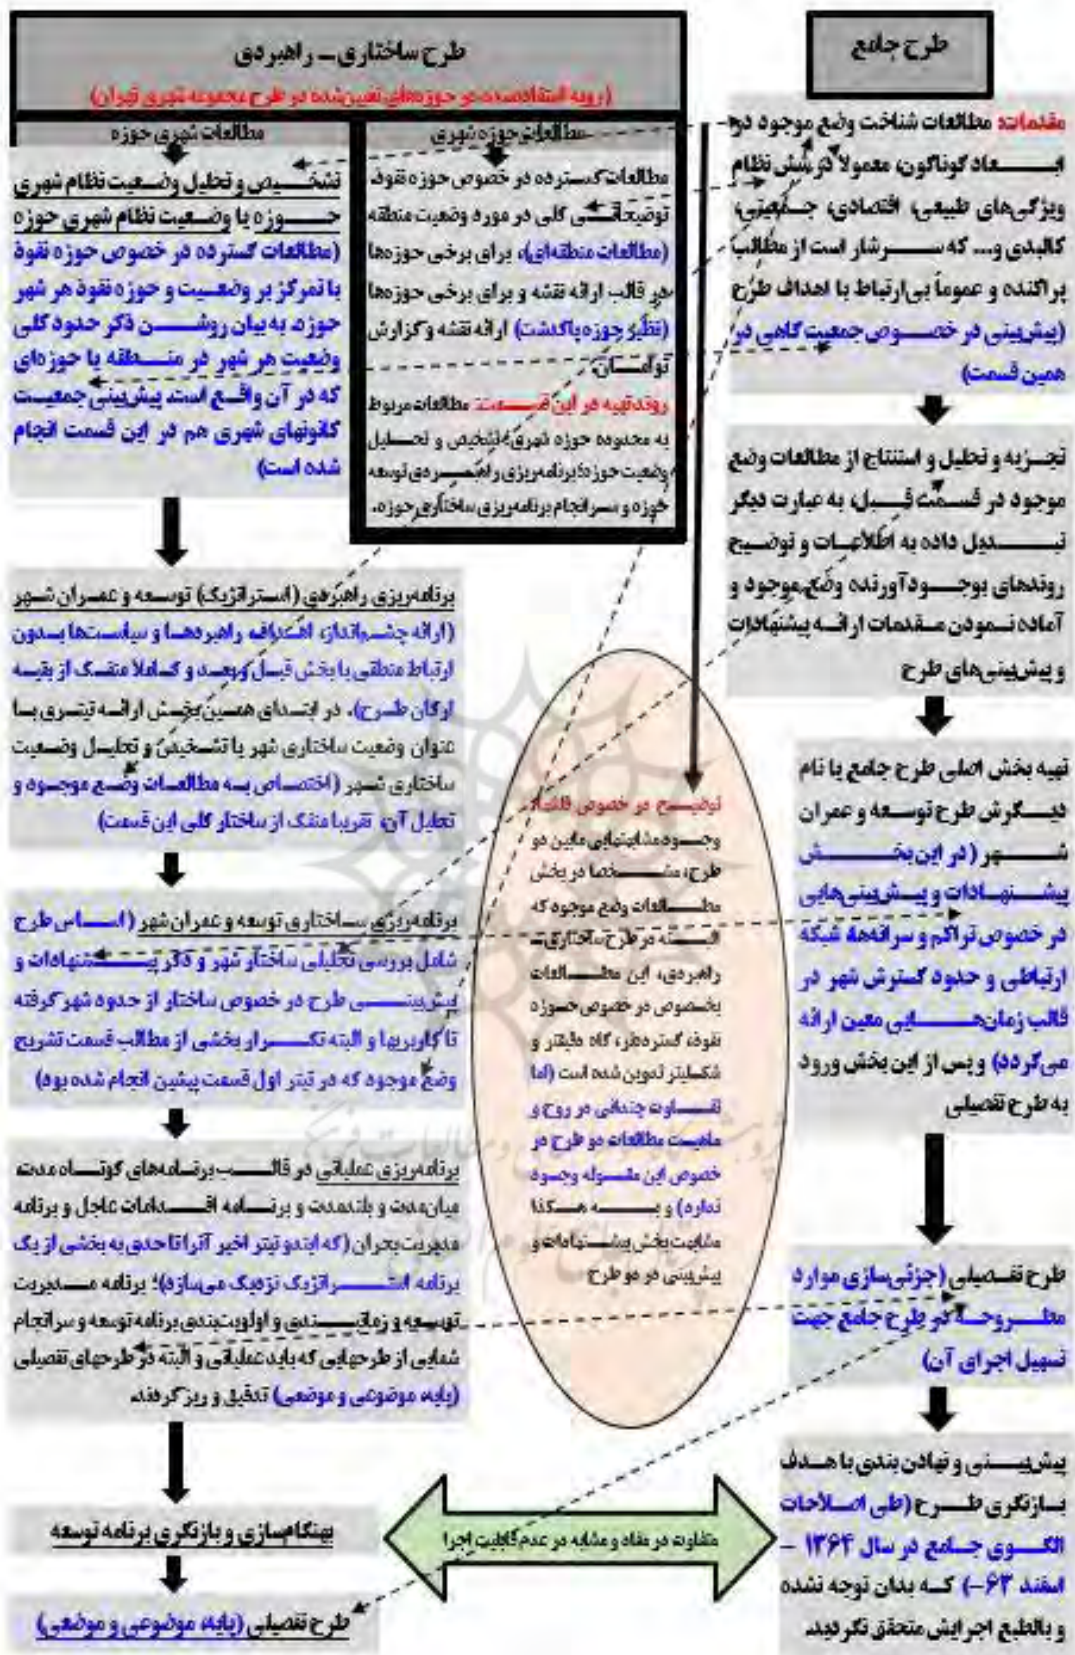 طرح جامع
مقدمات: مطالعات شناخت وضع موجود در
ابعاد گوناگون، معمولا در شش نظام
ویژگی‌های طبیعی، اقتصادی، جمعیتی،
کالبدی و... که سرشار است از مطالب
پراکنده و عموماً بی‌ارتباط با اهداف طرح
(پیش‌بینی در خصوص جمعیت گاهی در
همین قسمت)
تجزیه و تحلیل و استنتاج از مطالعات وضع
موجود در قسمت قبل، به عبارت دیگر
تبدیل داده به اطلاعات و توضیح
روندهای بوجودآورنده وضع موجود و
آماده نمودن مقدمات ارائه پیشنهادات
و پیش‌بینی‌های طرح
تهیه بخش اصلی طرح جامع یا نام
دیگرش طرح توسعه و عمران
شهر (در این بخش
پیشنهادات و پیش‌بینی‌هایی
در خصوص تراکم و سرانه‌ها، شبکه
ارتباطی و حدود گسترش شهر در
قالب زمان‌هایی معین ارائه
می‌گردد) و پس از این بخش ورود
به طرح تفصیلی
طرح تفصیلی (جزئی‌سازی موارد
مطروحه در طرح جامع جهت
تسهیل اجرای آن)
پیش‌بینی و نهادن بندی با هدف
بازنگری طرح (طی اصلاحات
الگوی جامع در سال ۱۳۶۴ –
اسفند ۶۳–) که بدان توجه نشده
و بالطبع اجرایش متحقق نگردید.
طرح ساختاری ـ راهبردی
(رویه استفاده‌شده در حوزه‌های تعیین‌شده در طرح مجموعه شهری تهران)
مطالعات حوزه شهری
مطالعات گسترده در خصوص حوزه نفوذ،
توضیحاتی کلی در مورد وضعیت منطقه
(مطالعات منطقه‌ای)، برای برخی حوزه‌ها
در قالب ارائه نقشه و برای برخی حوزه‌ها
(نظیر حوزه پاکدشت) ارائه نقشه و گزارش
توامان.
روند تهیه در این قسمت: مطالعات مربوط
به محدوده حوزه شهری؛ تشخیص و تحلیل
وضعیت حوزه؛ برنامه‌ریزی راهبردی توسعه
حوزه و سرانجام برنامه‌ریزی ساختاری حوزه.
مطالعات شهری حوزه
تشخیص و تحلیل وضعیت نظام شهری
حوزه یا وضعیت نظام شهری حوزه
(مطالعات گسترده در خصوص حوزه نفوذ
با تمرکز بر وضعیت و حوزه نفوذ هر شهر
حوزه، به بیان روشن ذکر حدود کلی
وضعیت هر شهر در منطقه یا حوزه‌ای
که در آن واقع است. پیش‌بینی جمعیت
کانونهای شهری هم در این قسمت انجام
شده است)
برنامه‌ریزی راهبردی (استراتژیک) توسعه و عمران شهر
(ارائه چشم‌انداز، اهداف، راهبردها و سیاست‌ها بدون
ارتباط منطقی با بخش قبل و بعد و کاملا منفک از بقیه
ارکان طرح). در ابتدای همین بخش ارائه تیتری با
عنوان وضعیت ساختاری شهر یا تشخیص و تحلیل وضعیت
ساختاری شهر (اختصاص به مطالعات وضع موجود و
تحلیل آن، تقریبا منفک از ساختار کلی این قسمت)
برنامه‌ریزی ساختاری توسعه و عمران شهر (اساس طرح
شامل بررسی تحلیلی ساختار شهر و ذکر پیشنهادات و
پیش‌بینی طرح در خصوص ساختار از حدود شهر گرفته
تا کاربریها و البته تکرار بخشی از مطالب قسمت تشریح
وضع موجود که در تیتر اول قسمت پیشین انجام شده بود)
برنامه‌ریزی عملیاتی در قالب برنامه‌های کوتاه مدت،
میان‌مدت و بلندمدت و برنامه اقدامات عاجل و برنامه
مدیریت بحران (که ایندو تیتر اخیر آنرا تا حدی به بخشی از یک
برنامه استراتژیک نزدیک می‌سازد)؛ برنامه مدیریت
توسعه و زمانبندی و اولویت‌بندی برنامه توسعه و سرانجام
شمایی از طرحهایی که باید عملیاتی و البته در طرحهای تفصیلی
(پایه، موضوعی و موضعی) تدقیق و ریز گردند.
بهنگام‌سازی و بازنگری برنامه توسعه
طرح تفصیلی (پایه، موضوعی و موضعی)
توضیح در خصوص
وجود مشابهتهایی مابین دو
طرح، مشخصا در بخش
مطالعات وضع موجود که
البته در طرح ساختاری ـ
راهبردی، این مطالعات
بخصوص در خصوص حوزه
نفوذ، گسترده‌تر، گاه دقیقتر و
شکیلتر تدوین شده است (اما
تفاوت چندانی در روح و
ماهیت مطالعات دو طرح در
خصوص این مقوله وجود
ندارد) و به هکذا
مشابهت بخش پیشنهادات و
پیش‌بینی در دو طرح
متفاوت در مفاد و مشابه در عدم قابلیت اجرا